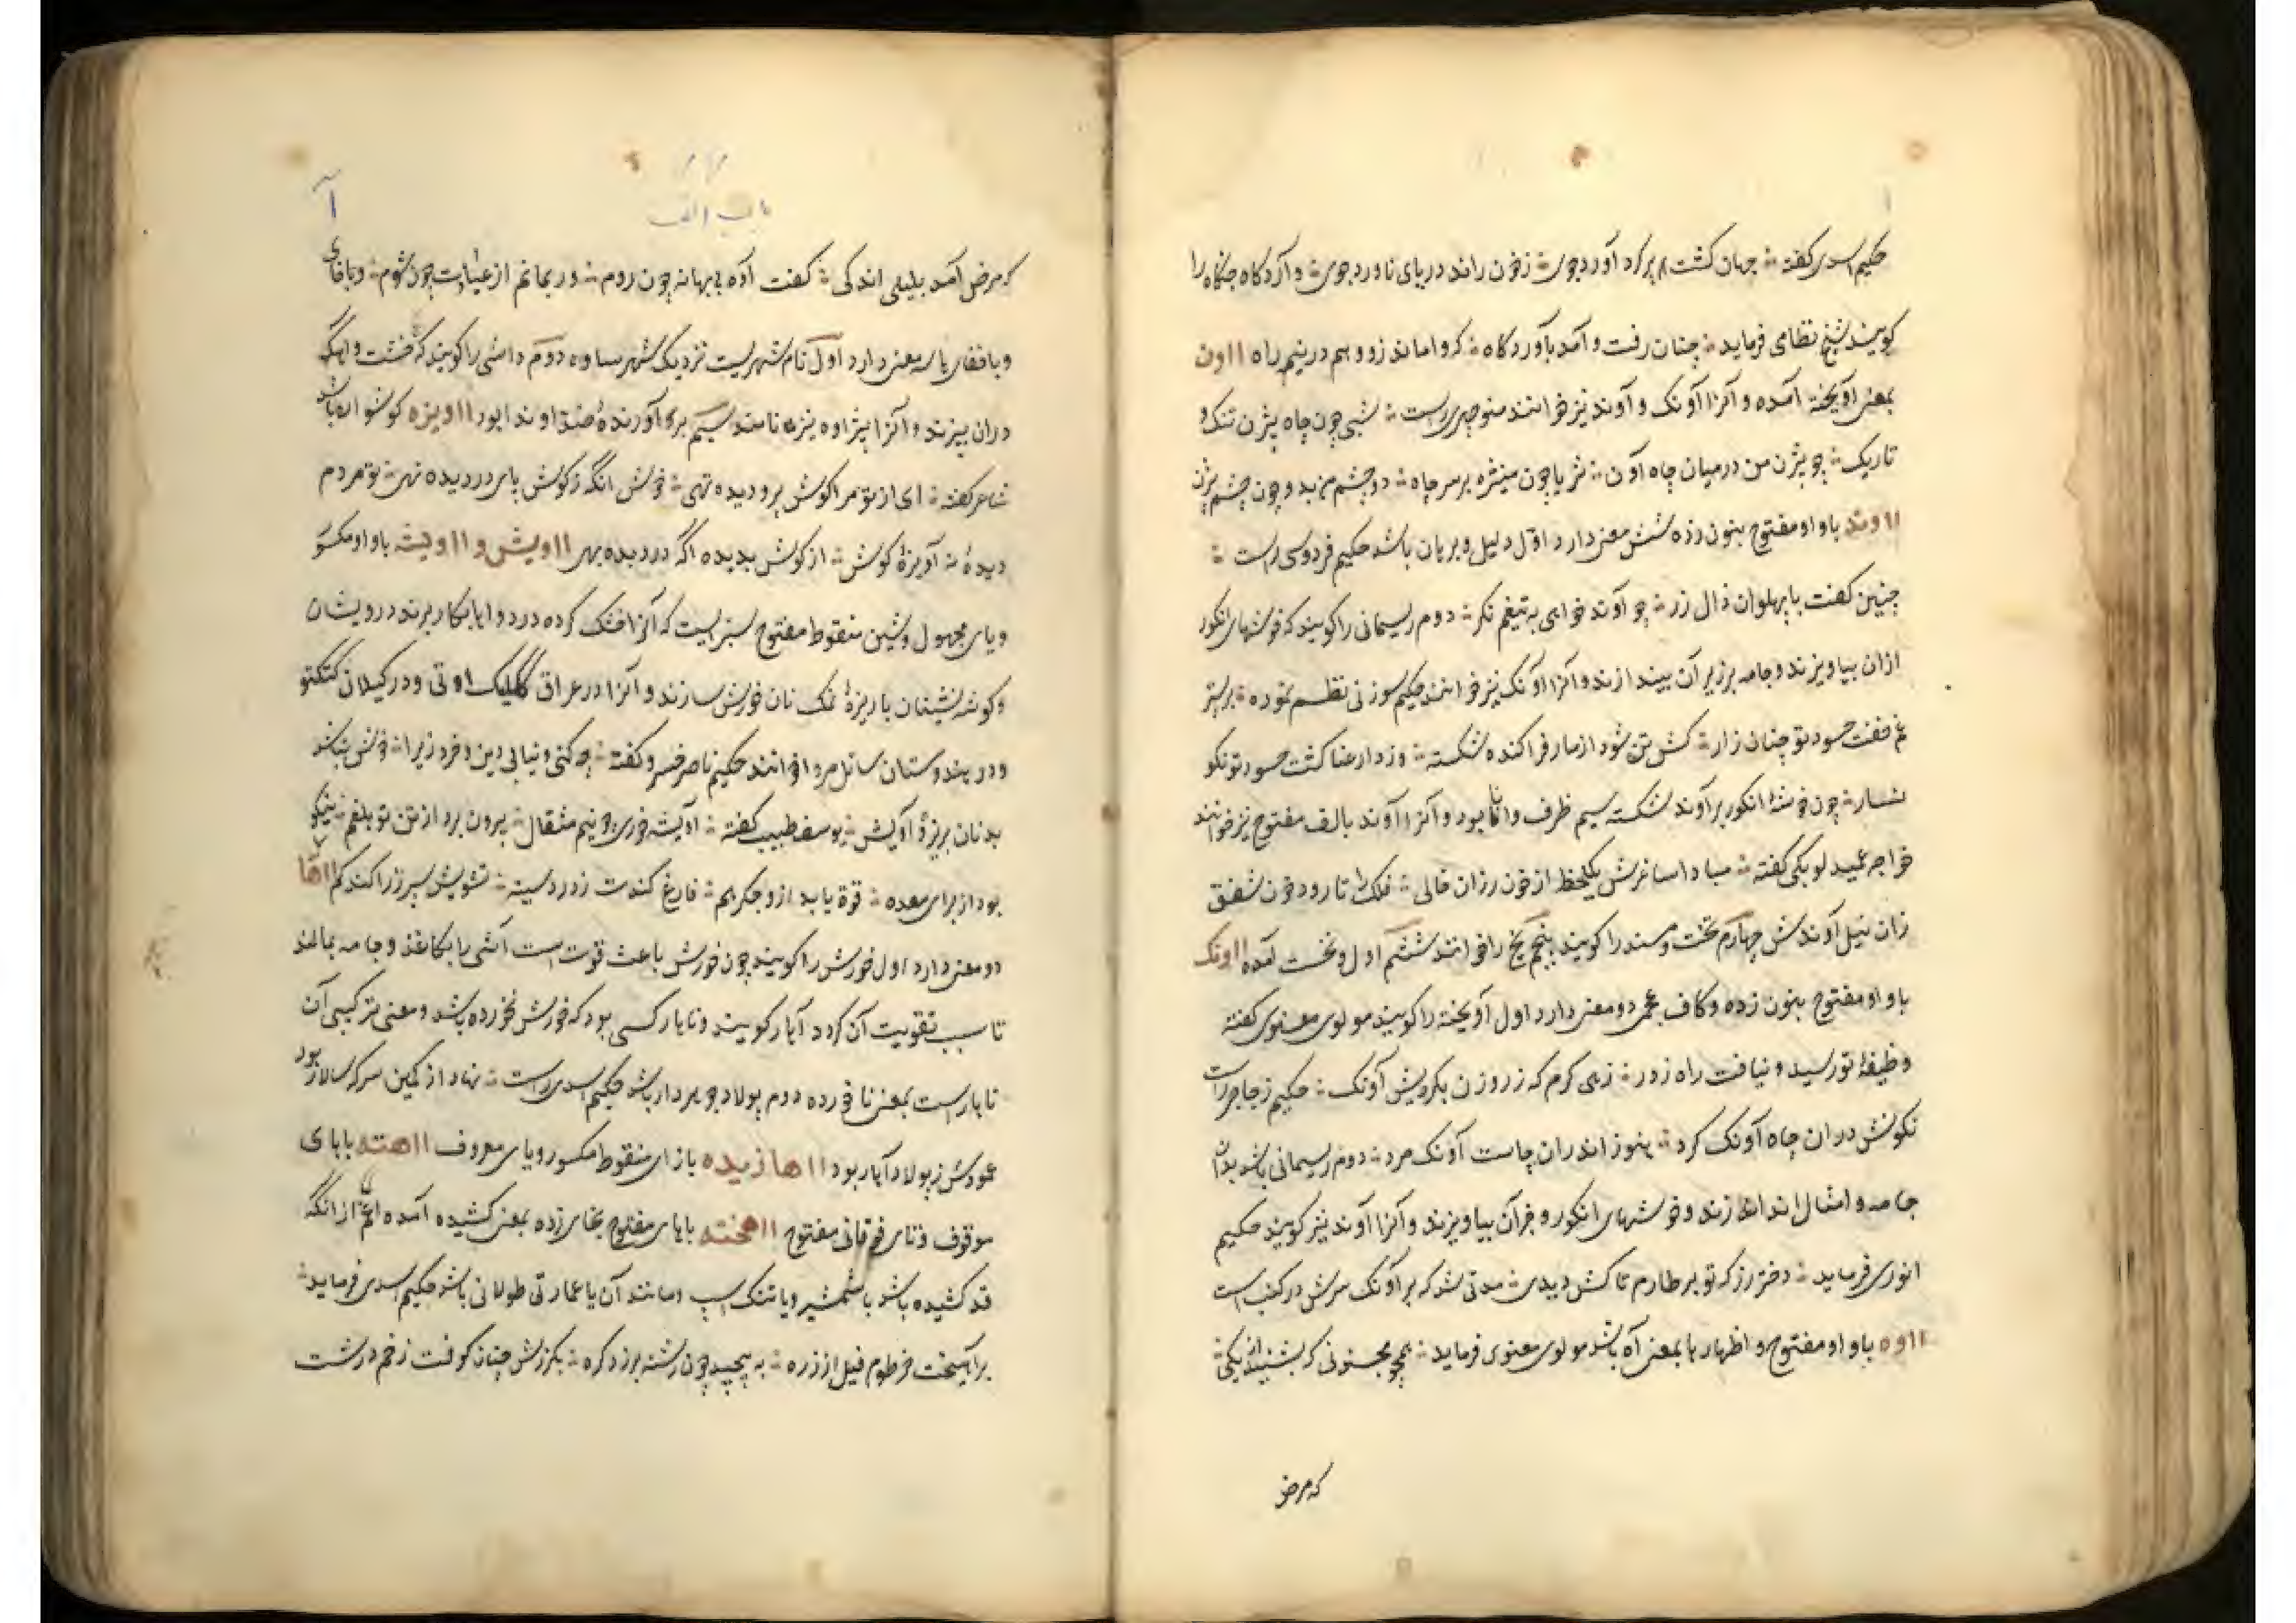 حکیم اسدی کفته جهان کشت پر کرد آورد جوی زخون راند دریای ناورد جوی و آردکاه جنکاه را
کویند شیخ نظامی فرماید چنان رفت و آمد بآوردکاه که واماند زو وهم در نیم راه ااون
بمعنی آویخته آمده و آنرا آونک و آوند نیز خوانند منوچهری راست شبی چون چاه بیژن تنک و
تاریک چو بیژن من درمیان چاه اون ثریا چون منیژه بر سر چاه دو چشم من بدو چون چشم بیژن
ااوند باواو مفتوح بنون زده شش معنی دارد اول دلیل و برهان باشد حکیم فردوسی راست
چنین کفت با پهلوان ذال زر چو آوند خواهی به تیغم نکر دوم ریسمانی را کویند که خوشهای انکور
ازان بیاویزند و جامه بر زبر آن بیندازند و آنرا آونک نیز خوانند حکیم سوزنی نظم نموده بر بستر
غم خفت حسود تو چنان زار کش تن شود از مار فراکنده شکسته وز دار عنا کشت حسود تو نکو
نسار چون خوشهٔ انکور بر آوند شکسته سیم ظرف وانا بود و آنرا آوند بالف مفتوح نیز خوانند
خواجه عمید لوبکی کفته مبادا ساغرش یکلحظ از خون رزان خالی فلک را تا رود خون شفق
زان نیل آوندش چهارم تخت و مسند را کویند پنجم یخ را خوانند ششم اول و نخست آمده ااونک
باواو مفتوح بنون زده و کاف عجمی دو معنی دارد اول آویخته را کویند مولوی معنوی کفته
وظیفهٔ تو رسید و نیافت راه زدر زهی کرم که ز روزن بکردیش آونک حکیم زجاجی راست
نکونش دران چاه آونک کرد هنوز اندران چاست آونک مرد دوم ریسمانی باشد بدان
جامه و امثال آن اندازند و خوشهای انکور و جز آن بیاویزند و آنرا آوند نیز کویند حکیم
انوری فرماید دختر رز که تو بر طارم تاکش دیدی مدتی شد که بر آونک سرش در کنب است
ااوه باواو مفتوح و اظهار ها بمعنی آه باشد مولوی معنوی فرماید همچو مجنونی که بشنید از یکی
که مرض
باب الف
آ
که مرض آمد بلیلی اندکی کفت آوه بی بهانه چون روم ور بمانم از عیادت چون شوم و باخفای
و باخفای ها سه معنی دارد اول نام شهریست نزدیک شهر ساوه دوم داشی را کویند که خشت و آهک
دران بپزند و آنرا پژاوه نیز نامند سیم بر آورندهٔ صدا و ندا بود ااویزه کوشواره باشد
شاعر کفته ای از تو مرا کوش پر و دیده تهی خوش آنکه ز کوش پای در دیده نهی تو مردم
دیدهٔ نه آویزهٔ کوش از کوش بدیده آکه در دیده بهی ااویشن و ااویشه باواو مکسور
و یای مجهول و شین منقوط مفتوح سبزیست که آنرا خشک کرده در دواها بکار برند درویشان
و کوشه نشینان با ریزهٔ نمک نان خورش سازند و آنرا در عراق کالیک اوتی و در کیلان کنکتو
و در هندوستان سانل مروا خوانند حکیم ناصر خسرو کفته چه کنی دنیا بی دین و خرد زیرا خوش نباشد
بد نان بریزهٔ آویش یوسف طبیب کفته آویشه خوری دو نیم مثقال بیرون برد از تن تو بلغم نیکو
بود از برای معده قوة یابد ازو جکر هم فارغ کندت ز درد سینه تشویش سپرز را کند کم ااها
دو معنی دارد اول خورش را کویند چون خورش باعث قوت است آشی را بکاغذ و جامه بمالند
تا سبب تقویت آن کردد آهار کویند و ناهار کسی بود که خورش نخورده باشد و معنی ترکیبی آن
ناهار است بمعنی ناخورده دوم پولاد جوهردار باشد حکیم اسدی راست نهاد از کمین سر که سالار بود
عمودش ز پولاد آهار بود ااهازیده بازای منقوط مکسور و یای معروف ااهته باهای
موقوف و تای فوقانی مفتوح ااهخته باهای مفتوح بخای زده بمعنی کشیده آمده اعم از آنکه
قد کشیده باشد یا شمشیر و یا تنک اسپ و مانند آن یا عمارتی طولانی باشد حکیم اسدی فرماید
بر آهیخت خرطوم فیل از زره به پیچید چون رشته بر زد کره بکرزش چنان کوفت زخم درشت